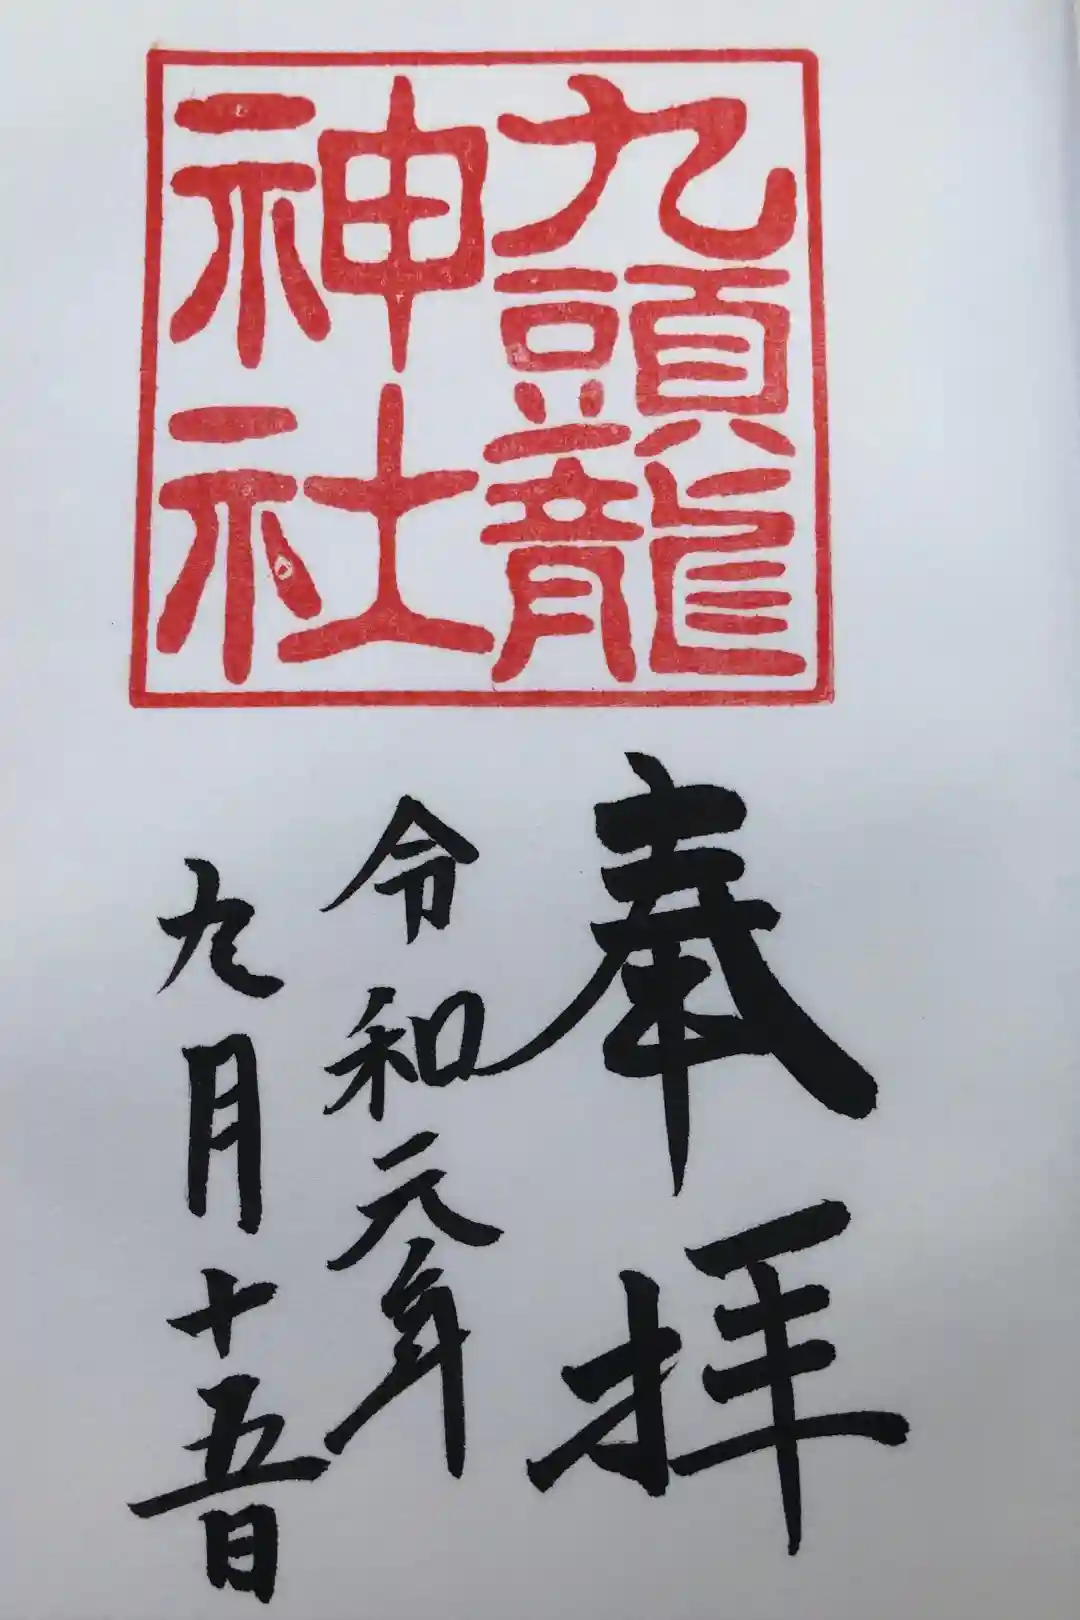 九頭龍
神社
奉拝
令和元年
九月十五日